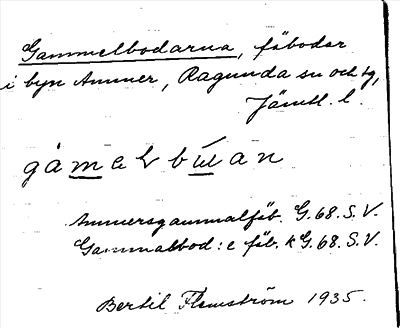 Gammelbodarna, fäbodar
i byn Ammer, Ragunda sn och tg,
Jämtl. l.
gåmelbúan
Ammersgammalfäb. G. 68. S. V.
Gammalbod: e fäb. k G. 68. S. V.
Bertil Flemström 1935.